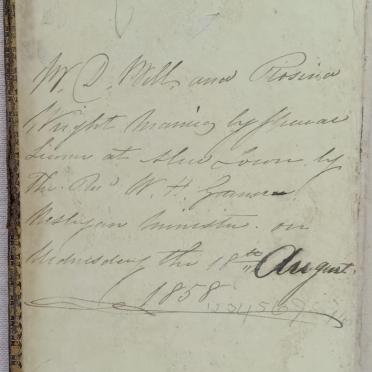 W. D. Bell and Rosina
Wright Married by
License at by
The Revd W. H.
Wesleyan Minister on
Wednesday the 18th August
1858